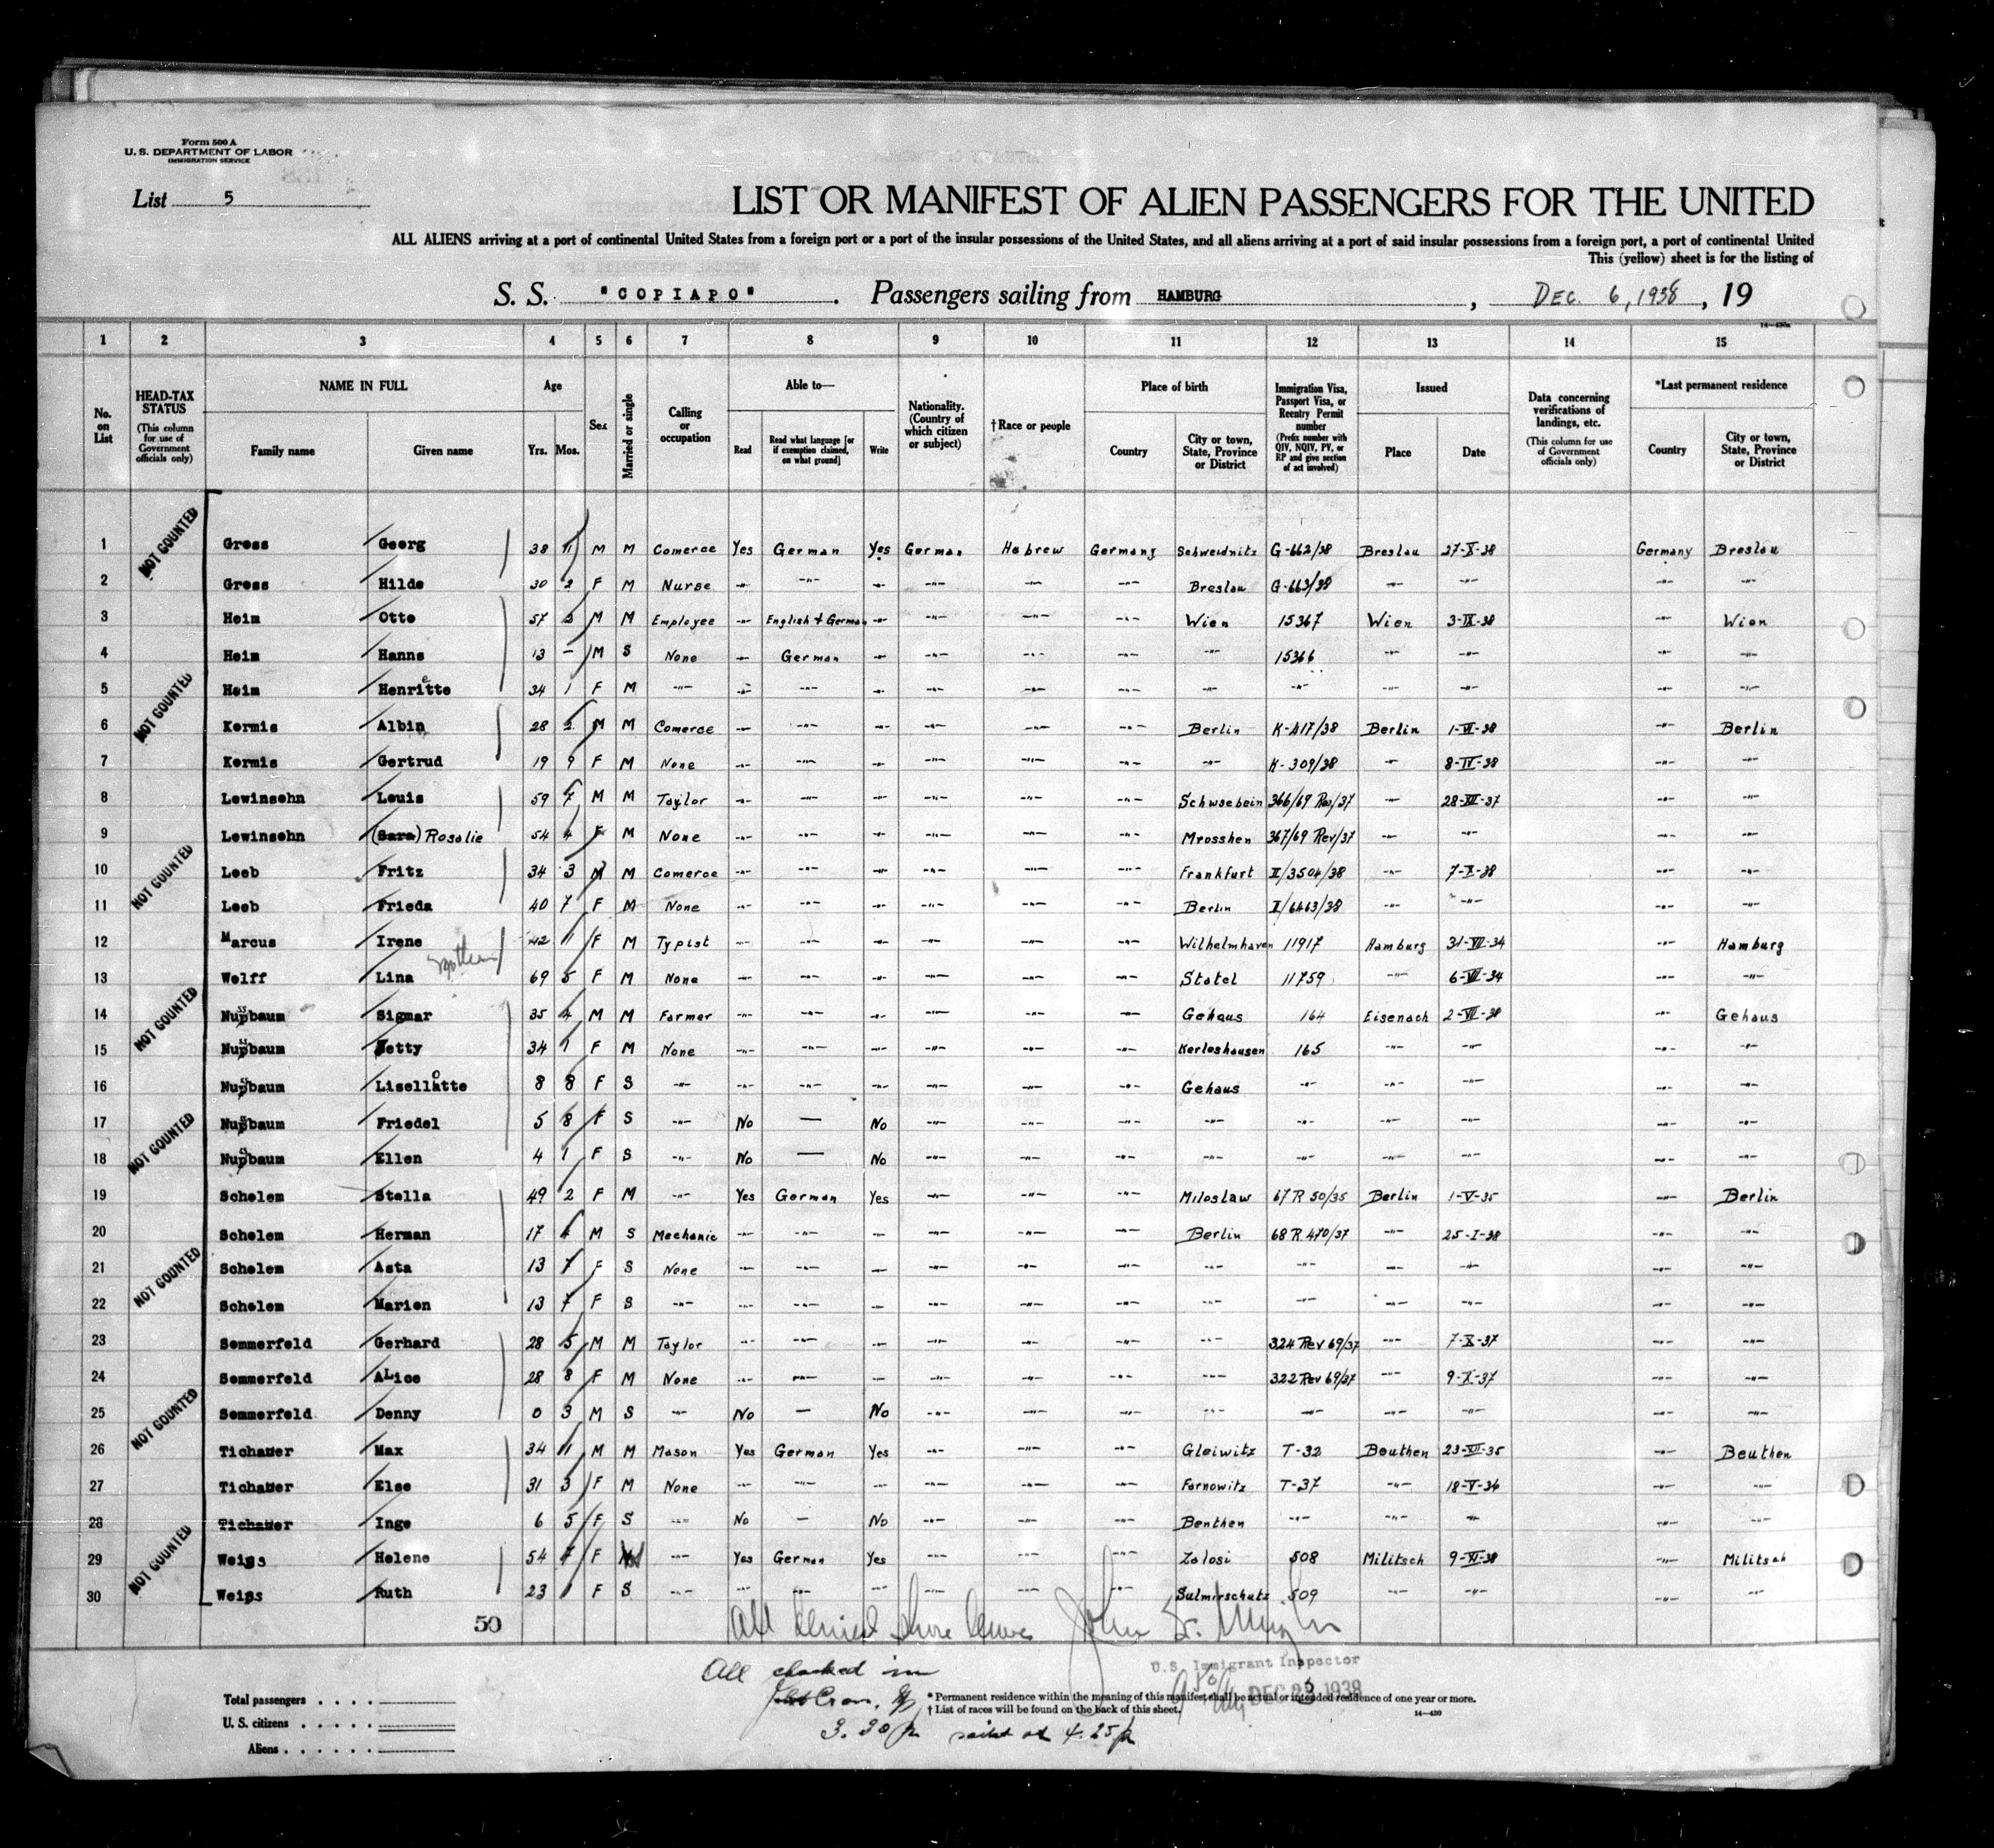 Form 500 A
U. S. DEPARTMENT OF LABOR
IMMIGRATION SERVICE
List 5
LIST OR MANIFEST OF ALIEN PASSENGERS FOR THE UNITED
ALL ALIENS arriving at a port of continental United States from a foreign port or a port of the insular possessions of the United States, and all aliens arriving at a port of said insular possessions from a foreign port, a port of continental United
This (yellow) sheet is for the listing of
S. S. "COPIAPO" . Passengers sailing from HAMBURG , DEC. 6, 1938, 19
14—430a
1 2 3 4 5 6 7 8 9 10 11 12 13 14 15
No. on List
HEAD-TAX STATUS (This column for use of Government officials only)
NAME IN FULL Family name Given name
Age Yrs. Mos.
Sex
Married or single
Calling or occupation
Able to— Read Read what language [or if exemption claimed, on what ground] Write
Nationality. (Country of which citizen or subject)
†Race or people
Place of birth Country City or town, State, Province or District
Immigration Visa, Passport Visa, or Reentry Permit number (Prefix number with QIV, NQIV, PV, or RP and give section of act involved)
Issued Place Date
Data concerning verifications of landings, etc. (This column for use of Government officials only)
*Last permanent residence Country City or town, State, Province or District
NOT COUNTED
1 Gross Georg 38 11 M M Comerce Yes German Yes German Hebrew Germany Schweidnitz G-662/38 Breslau 27-X-38 Germany Breslau
2 Gross Hilde 30 2 F M Nurse -"- -"- -"- -"- -"- -"- Breslau G-663/38 -"- -"- -"- -"-
3 Heim Otto 57 M M Employee -"- English + German -"- -"- -"- -"- Wien 15367 Wien 3-IX-38 -"- Wien
4 Heim Hanns 13 — M S None -"- German -"- -"- -"- -"- -"- 15366 -"- -"- -"- -"-
NOT COUNTED
5 Heim Henriette 34 1 F M -"- -"- -"- -"- -"- -"- -"- -"- -"- -"- -"- -"- -"-
6 Kermis Albin 28 2 M M Comerce -"- -"- -"- -"- -"- -"- Berlin K-417/38 Berlin 1-VI-38 -"- Berlin
7 Kermis Gertrud 19 9 F M None -"- -"- -"- -"- -"- -"- -"- K-309/38 -"- 8-IV-38 -"- -"-
8 Lewinsohn Louis 59 7 M M Taylor -"- -"- -"- -"- -"- -"- Schwsebein 366/69 Rev/37 -"- 28-XII-37 -"- -"-
9 Lewinsohn (Sara) Rosalie 54 4 F M None -"- -"- -"- -"- -"- -"- Mrosshen 367/69 Rev/37 -"- -"- -"- -"-
NOT COUNTED
10 Loeb Fritz 34 3 M M Comerce -"- -"- -"- -"- -"- -"- Frankfurt II/3504/38 -"- 7-X-38 -"- -"-
11 Loeb Frieda 40 7 F M None -"- -"- -"- -"- -"- -"- Berlin I/6463/38 -"- -"- -"- -"-
12 Marcus Irene 42 11 F M Typist -"- -"- -"- -"- -"- -"- Wilhelmhaven 11917 Hamburg 31-VII-34 -"- Hamburg
mother
13 Wolff Lina 69 5 F M None -"- -"- -"- -"- -"- -"- Stotel 11759 -"- 6-VII-34 -"- -"-
NOT COUNTED
14 Nussbaum Sigmar 35 4 M M Farmer -"- -"- -"- -"- -"- -"- Gehaus 164 Eisenach 2-VII-38 -"- Gehaus
15 Nussbaum Jetty 34 1 F M None -"- -"- -"- -"- -"- -"- Kerleshausen 165 -"- -"- -"- -"-
16 Nussbaum Lisellotte 8 8 F S -"- -"- -"- -"- -"- -"- -"- Gehaus -"- -"- -"- -"- -"-
17 Nussbaum Friedel 5 8 F S -"- No — No -"- -"- -"- -"- -"- -"- -"- -"- -"-
NOT COUNTED
18 Nussbaum Ellen 4 1 F S -"- No — No -"- -"- -"- -"- -"- -"- -"- -"- -"-
19 Scholem Stella 49 2 F M -"- Yes German Yes -"- -"- -"- Miloslaw 67 R 50/35 Berlin 1-V-35 -"- Berlin
20 Scholem Herman 17 4 M S Mechanic -"- -"- -"- -"- -"- -"- Berlin 68 R 470/37 -"- 25-I-38 -"- -"-
NOT COUNTED
21 Scholem Asta 13 7 F S None -"- -"- -"- -"- -"- -"- -"- -"- -"- -"- -"- -"-
22 Scholem Marion 13 7 F S -"- -"- -"- -"- -"- -"- -"- -"- -"- -"- -"- -"- -"-
23 Sommerfeld Gerhard 28 5 M M Taylor -"- -"- -"- -"- -"- -"- -"- 324 Rev 69/37 -"- 7-X-37 -"- -"-
24 Sommerfeld ALice 28 8 F M None -"- -"- -"- -"- -"- -"- -"- 322 Rev 69/37 -"- 9-X-37 -"- -"-
NOT COUNTED
25 Sommerfeld Denny 0 3 M S -"- No — No -"- -"- -"- -"- -"- -"- -"- -"- -"-
26 Tichauer Max 34 11 M M Mason Yes German Yes -"- -"- -"- Gleiwitz T-32 Beuthen 23-VII-35 -"- Beuthen
27 Tichauer Else 31 3 F M None -"- -"- -"- -"- -"- -"- Farnowitz T-37 -"- 18-V-36 -"- -"-
28 Tichauer Inge 6 5 F S -"- No — No -"- -"- -"- Benthen -"- -"- -"- -"- -"-
NOT COUNTED
29 Weiss Helene 54 7 F W -"- Yes German Yes -"- -"- -"- Zalosi 508 Militsch 9-XI-38 -"- Militsch
30 Weiss Ruth 23 1 F S -"- -"- -"- -"- -"- -"- Sulmirschutz 509 -"- -"- -"- -"-
50
All denied shore leave John
U.S. Immigrant Inspector
DEC 23 1938
All checked in
3.30 p sailed at 4.25 p
Total passengers . . . .
U. S. citizens . . . . .
Aliens . . . . . .
* Permanent residence within the meaning of this manifest shall be actual or intended residence of one year or more.
† List of races will be found on the back of this sheet.
14—430